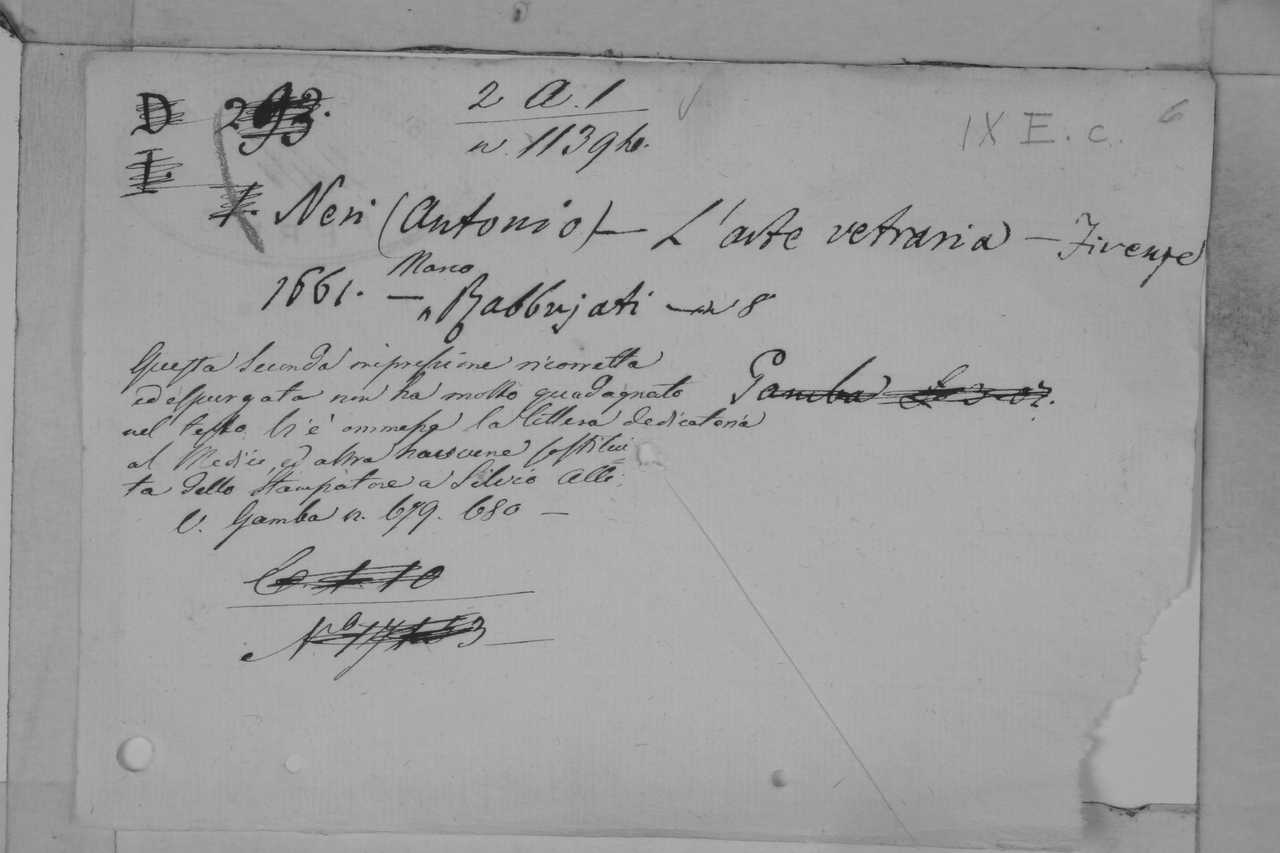 D 293.
I.
2 A. 1
n. 11396.
IX E. c. 6
1. Neri (Antonio) — L'arte vetraria — Firenze
1661. — Marco Rabbujati — in 8
Questa seconda impressione ricorretta
ed espurgata non ha molto guadagnato
nel testo. Vi è ommessa la lettera dedicatoria
al Medici, ed altra havvene sostitui
ta dello Stampatore a Silvio Alli.
V. Gamba n. 679. 680 —
Gamba